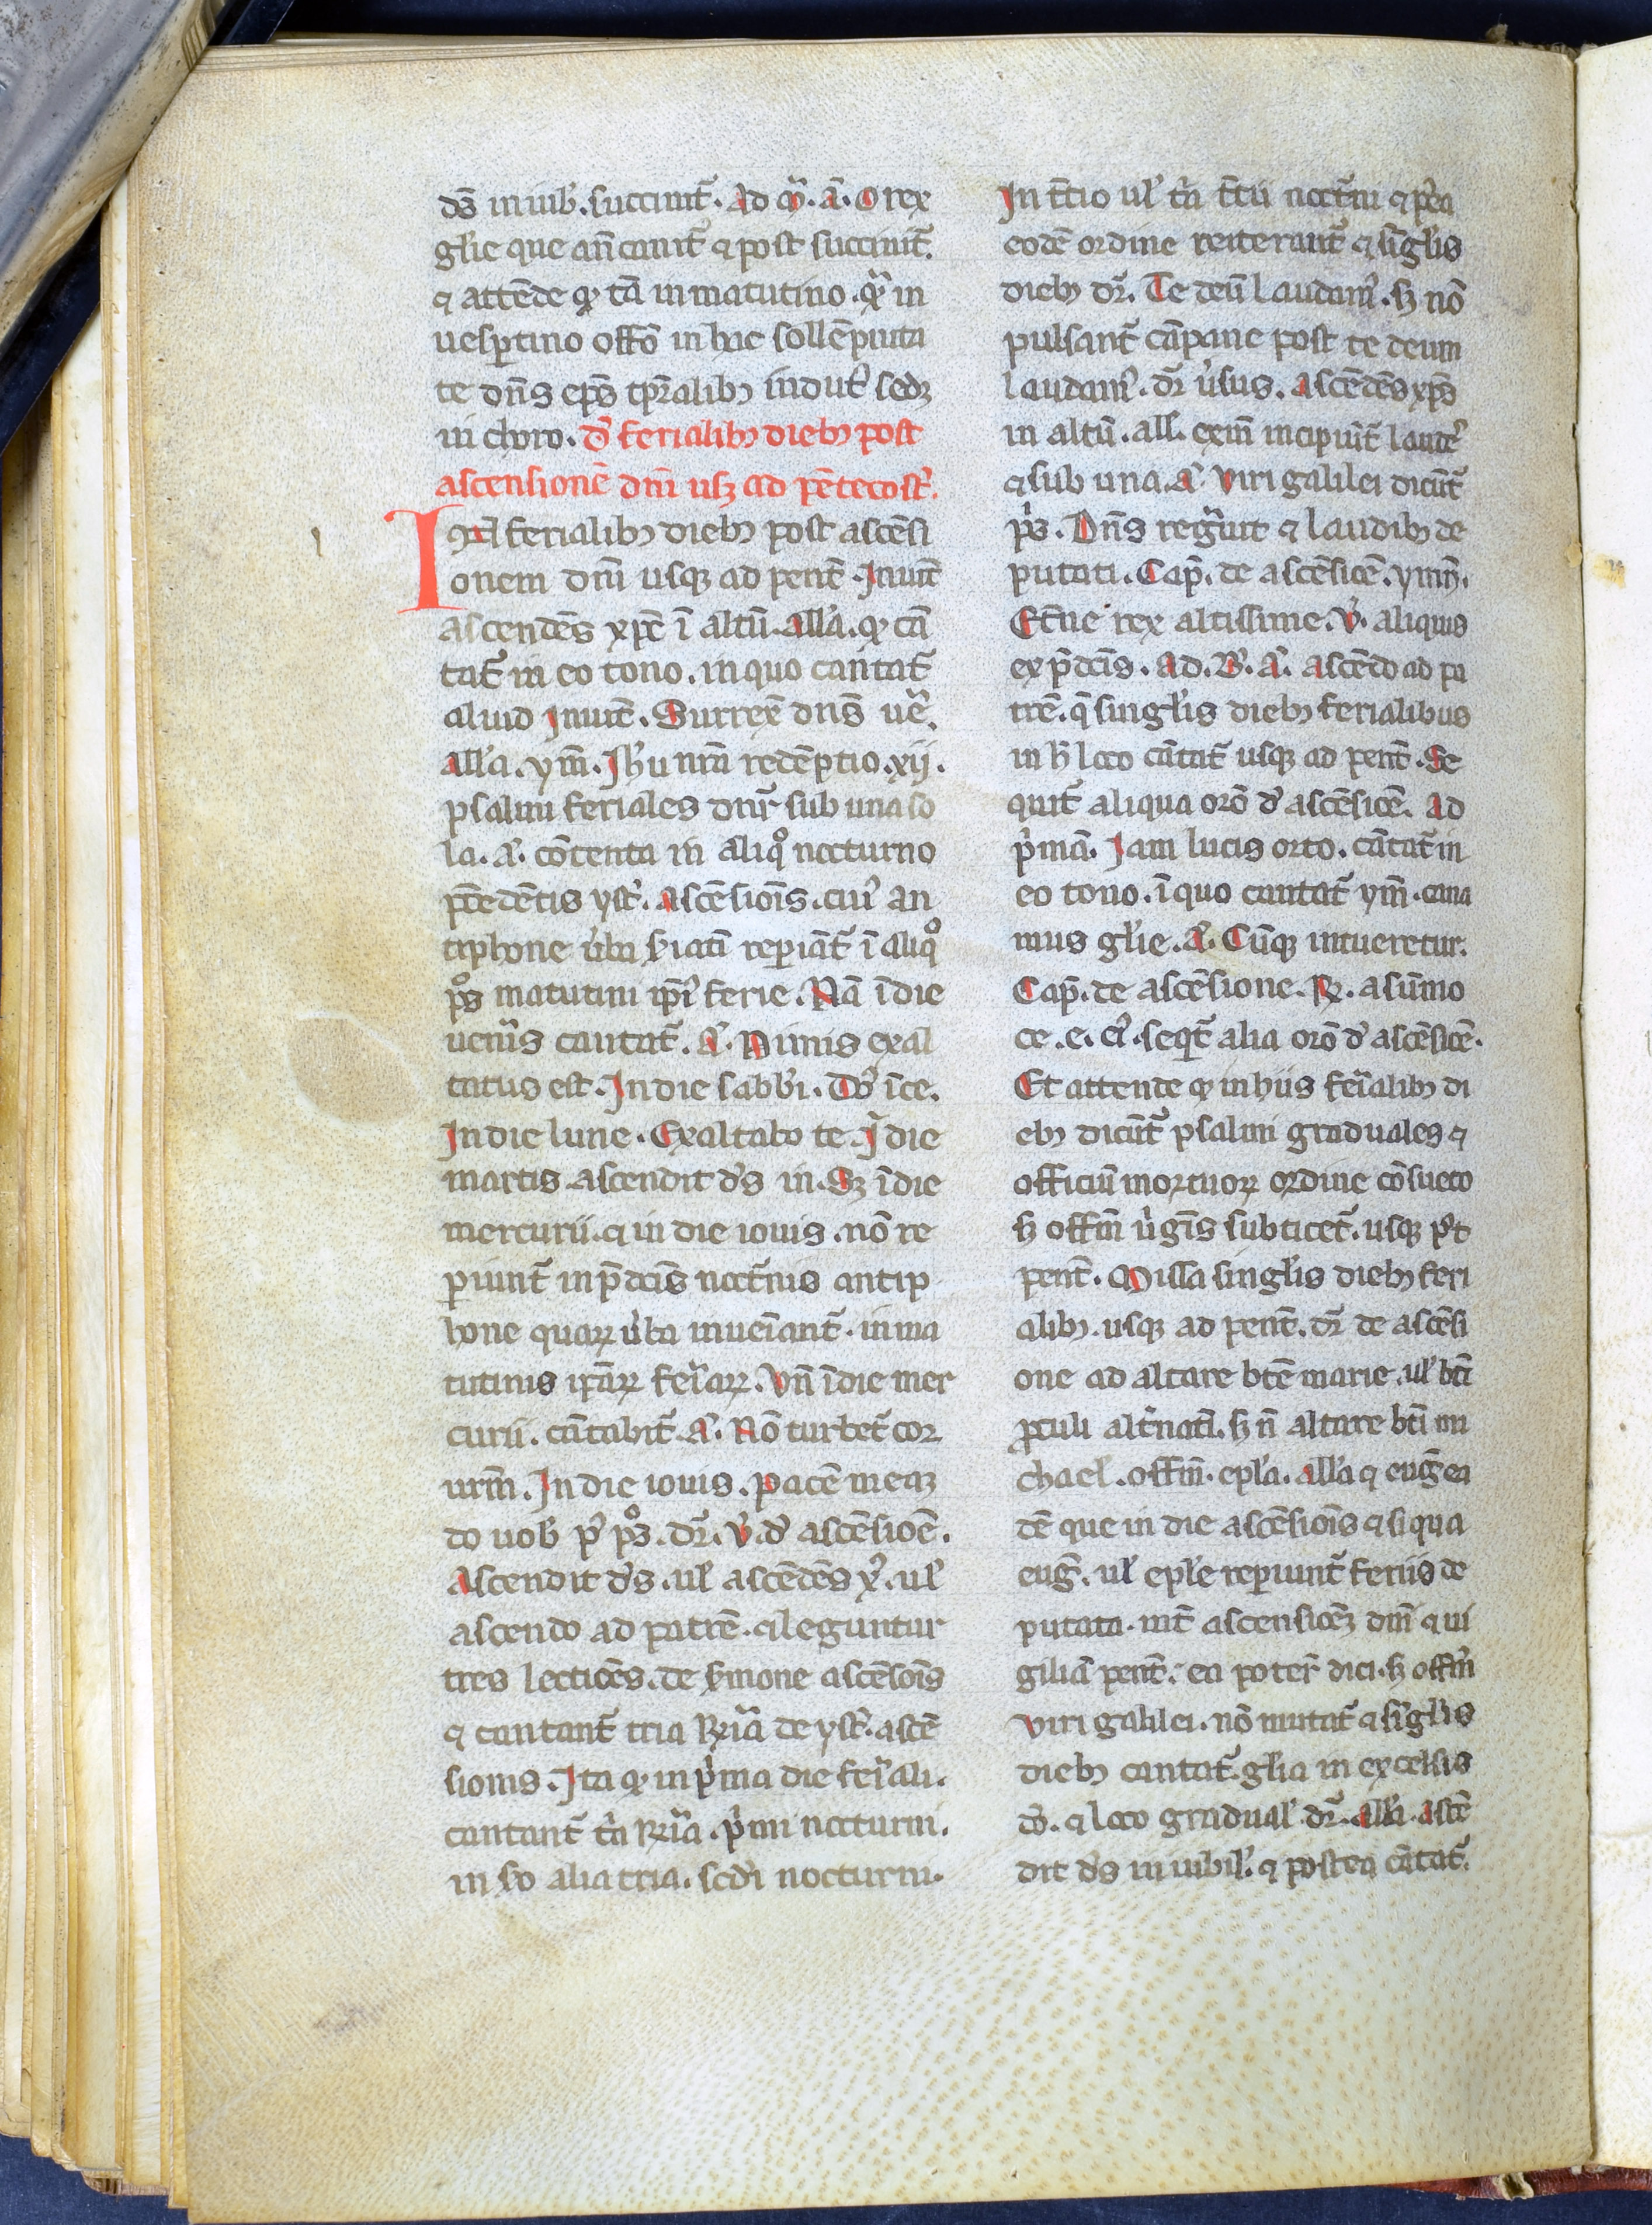 ds̄ in iub̾. succinit᷑. Ad m̄. a᷑. O rex
glie que an̄ canit᷑ ⁊ post succinit᷑.
⁊ attēde ꝙ tā in matutino. qᷓ in
uesꝑtino offō in hac sollēpnita
te dn̄s eps̄ tꝑalibꝫ indut᷑ sedꝫ
in choro. d̾ ferialibꝫ diebꝫ post
ascensionē dn̄i usqꝫ ad pētecost̾.
In ferialibꝫ diebꝫ post ascēsi
onem dn̄i usqꝫ ad pent̄. Inuit̄
ascendēs xp̄c ī altū. alla. ꝙ cā
tat᷑ in eo tono. in quo cantat᷑
aliud Inuit̄. Surrex̄ dn̄s ue᷑.
alla. ym̄. Ihū nr̄a redēptio. xij.
psalmi feriales dn̄r sub una so
la. a᷑. cōtenta in aliqͦ nocturno
p̄cedētis yst᷑. ascēsiōis. cui᷒ an
tiphone ūba s̄iatī reꝑiāt᷑ ī aliqͦ
pͦs matutini ip̄i᷒ ferie. Nā ī die
uen̾is cantat᷑. a᷑. Nimis exal
tatus est. In die sabb̾i. Dn̄s īce.
In die lune. Exaltabo te. I die
martis ascendit ds̄ in. Sꝫ ī die
mercurii. ⁊ in die iouis. nō re
ꝑiunt᷑ in p̄dc̄is noct᷑nis antip
hone quaꝝ ūba inueīant᷑. in ma
tutinis ip̄aꝝ fer̾iaꝝ. Vn̄ ī die mer
curii. cātabit᷑ a᷑. Nō turbet᷑ cor
urm̄. In die iouis. pacē meaꝫ
do uob̾ p̾ pͦs. dr̄. v̾. d̾ ascēsiōe.
Ascendit ds̄. ul̾ ascēdēs x᷒. ul̾
ascendo ad patrē. ⁊ leguntur
tres lectiōes. de s̾mone ascēsōis
⁊ cantant᷑ tria R̄ria de yst᷑. ascē
sionis. Ita ꝙ in p̾ma die fer̾iali.
cantant᷑ t̾a R̄ria. p̾mi nocturni.
in s̄o alia tria. scd̄i nocturni.
In t̄cio ul̾ t̾a t̄cii noct᷑ni ⁊ p̾ea
eodē ordine reiterant᷑ ⁊ sīgl̾is
diebꝫ dr̄. Te deū laudam᷒. sꝫ nō
pulsant᷑ cāpane post te deum
laudam᷒. dr̄ u̾sus. Ascēdēs xp̄s
in altū. all̾. exin̄ incipiūt᷑ laudes
⁊ sub una. a᷑ viri galilei dicūt᷑
p̾s. Dn̄s regnauit ⁊ laudibꝫ de
putati. Cap̄. de ascēsiōe. ymn̄.
Et̄ne rex altissime. v̾. aliquis
ex p̄dc̄is. ad. B̾. a᷑. ascēdo ad pa
trē. q̄ singl̾is diebꝫ ferialibus
in h̾ loco cātat᷑ usqꝫ ad pent̄. Se
quit᷑ aliqua orō d̾ ascēsiōe. Ad
p̾mā. Iam lucis orto. cātat᷑ in
eo tono. ī quo cantat᷑ ym̄. cana
mus gl̾ie. a᷑. Cūqꝫ intueretur.
Cap̄. de ascēsione. R̾. a sūmo
ce. e. ei᷒. seqt᷑ alia orō d̾ ascēsiōe.
Et attende ꝙ in hiis fer̾ialibꝫ di
ebꝫ dicūt᷑ psalmi graduales ⁊
officiū mortuoꝝ ordine cōsueto
sꝫ offm̄ u̾gīs subticet᷑. usqꝫ p᷒t
pent̄. Missa singl̾is diebꝫ feri
alibꝫ. usqꝫ ad pent̄. dr̄ de ascēsi
one ad altare bt̄e marie. ul̾ bt̄i
pauli alt᷑natī. sꝫ n̄ altare bt̄i mi
chael̾. offm̄. epl̾a. alla ⁊ eug̾ ea
dē que in die ascēsiōis ⁊ si qua
eug̾. ul̾ epl̾e reꝑiunt᷑ feriis de
putata. int̾ ascensiōeꝫ dn̄i ⁊ ui
giliā pent̄. ea poter̾ dici. sꝫ offm̄
viri galilei. nō mutat᷑ ⁊ sīgl̾is
diebꝫ cantat᷑. gl̾ia in excelsis
dō. ⁊ loco gradual̾ dr̄. alla. Ascē
dit ds̄ in iubil̾. ⁊ postea cātat᷑.